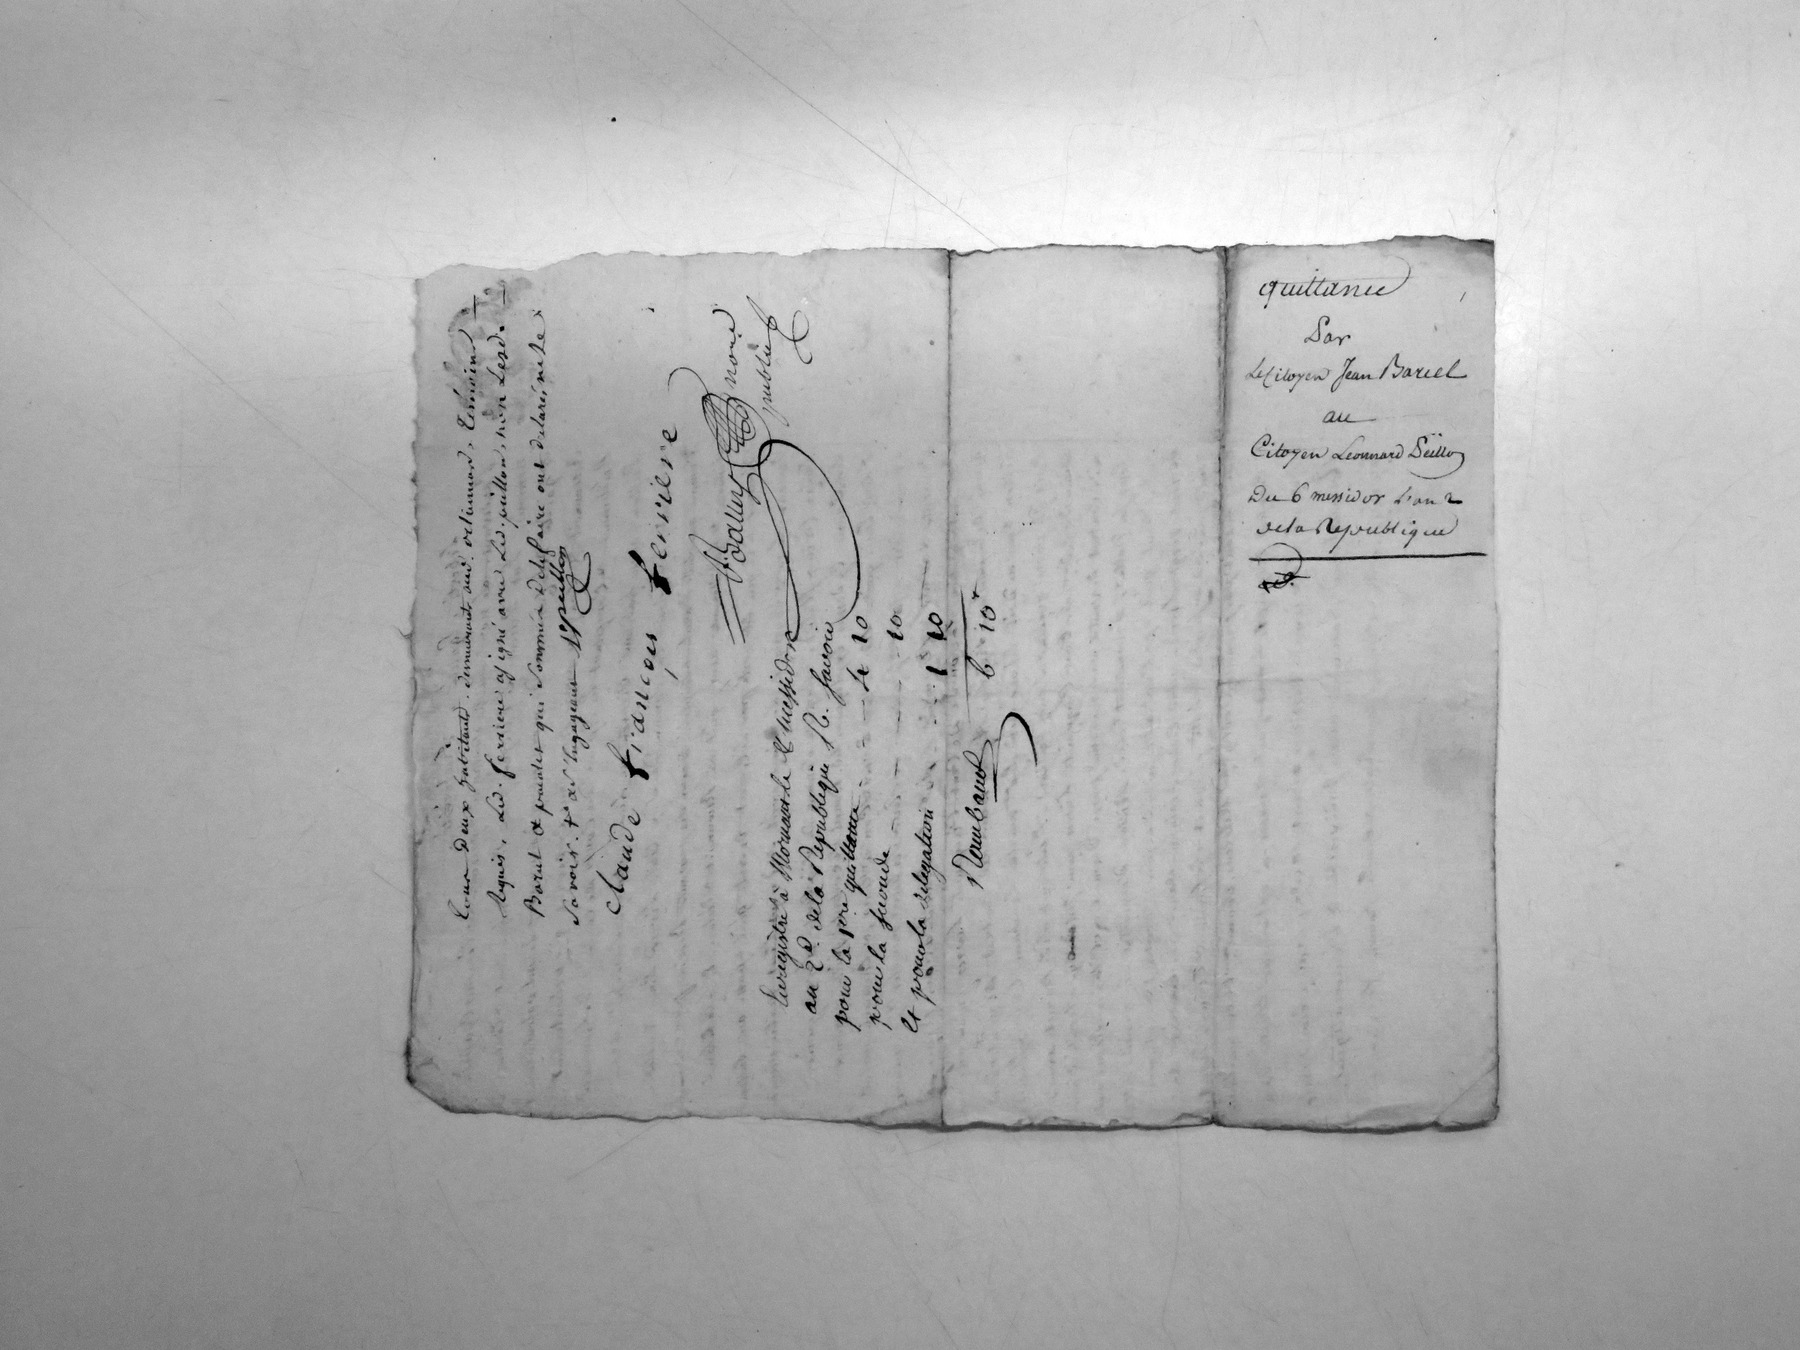 quittance
Par
Le Citoyen Jean Barcel
au
Citoyen Leonnard Peillon
Du 6 messidor l'an 2
de la Republique
tous deux habitant demeurant aud. ortiamord, témoins
Requis, Led. ferriere a signé avec Led. peillon, non Lesd.
Barcel & parties qui sommés de le faire ont déclaré ne le
savoir.
peillon
Claude françois ferriere
noire
publie
Enregistré à Mornant le Messidor
an 2d. de la Republique R. savoir
pour la pre quittance 4 10
pour la seconde 10
Et pour la delegation 1 10
6 10